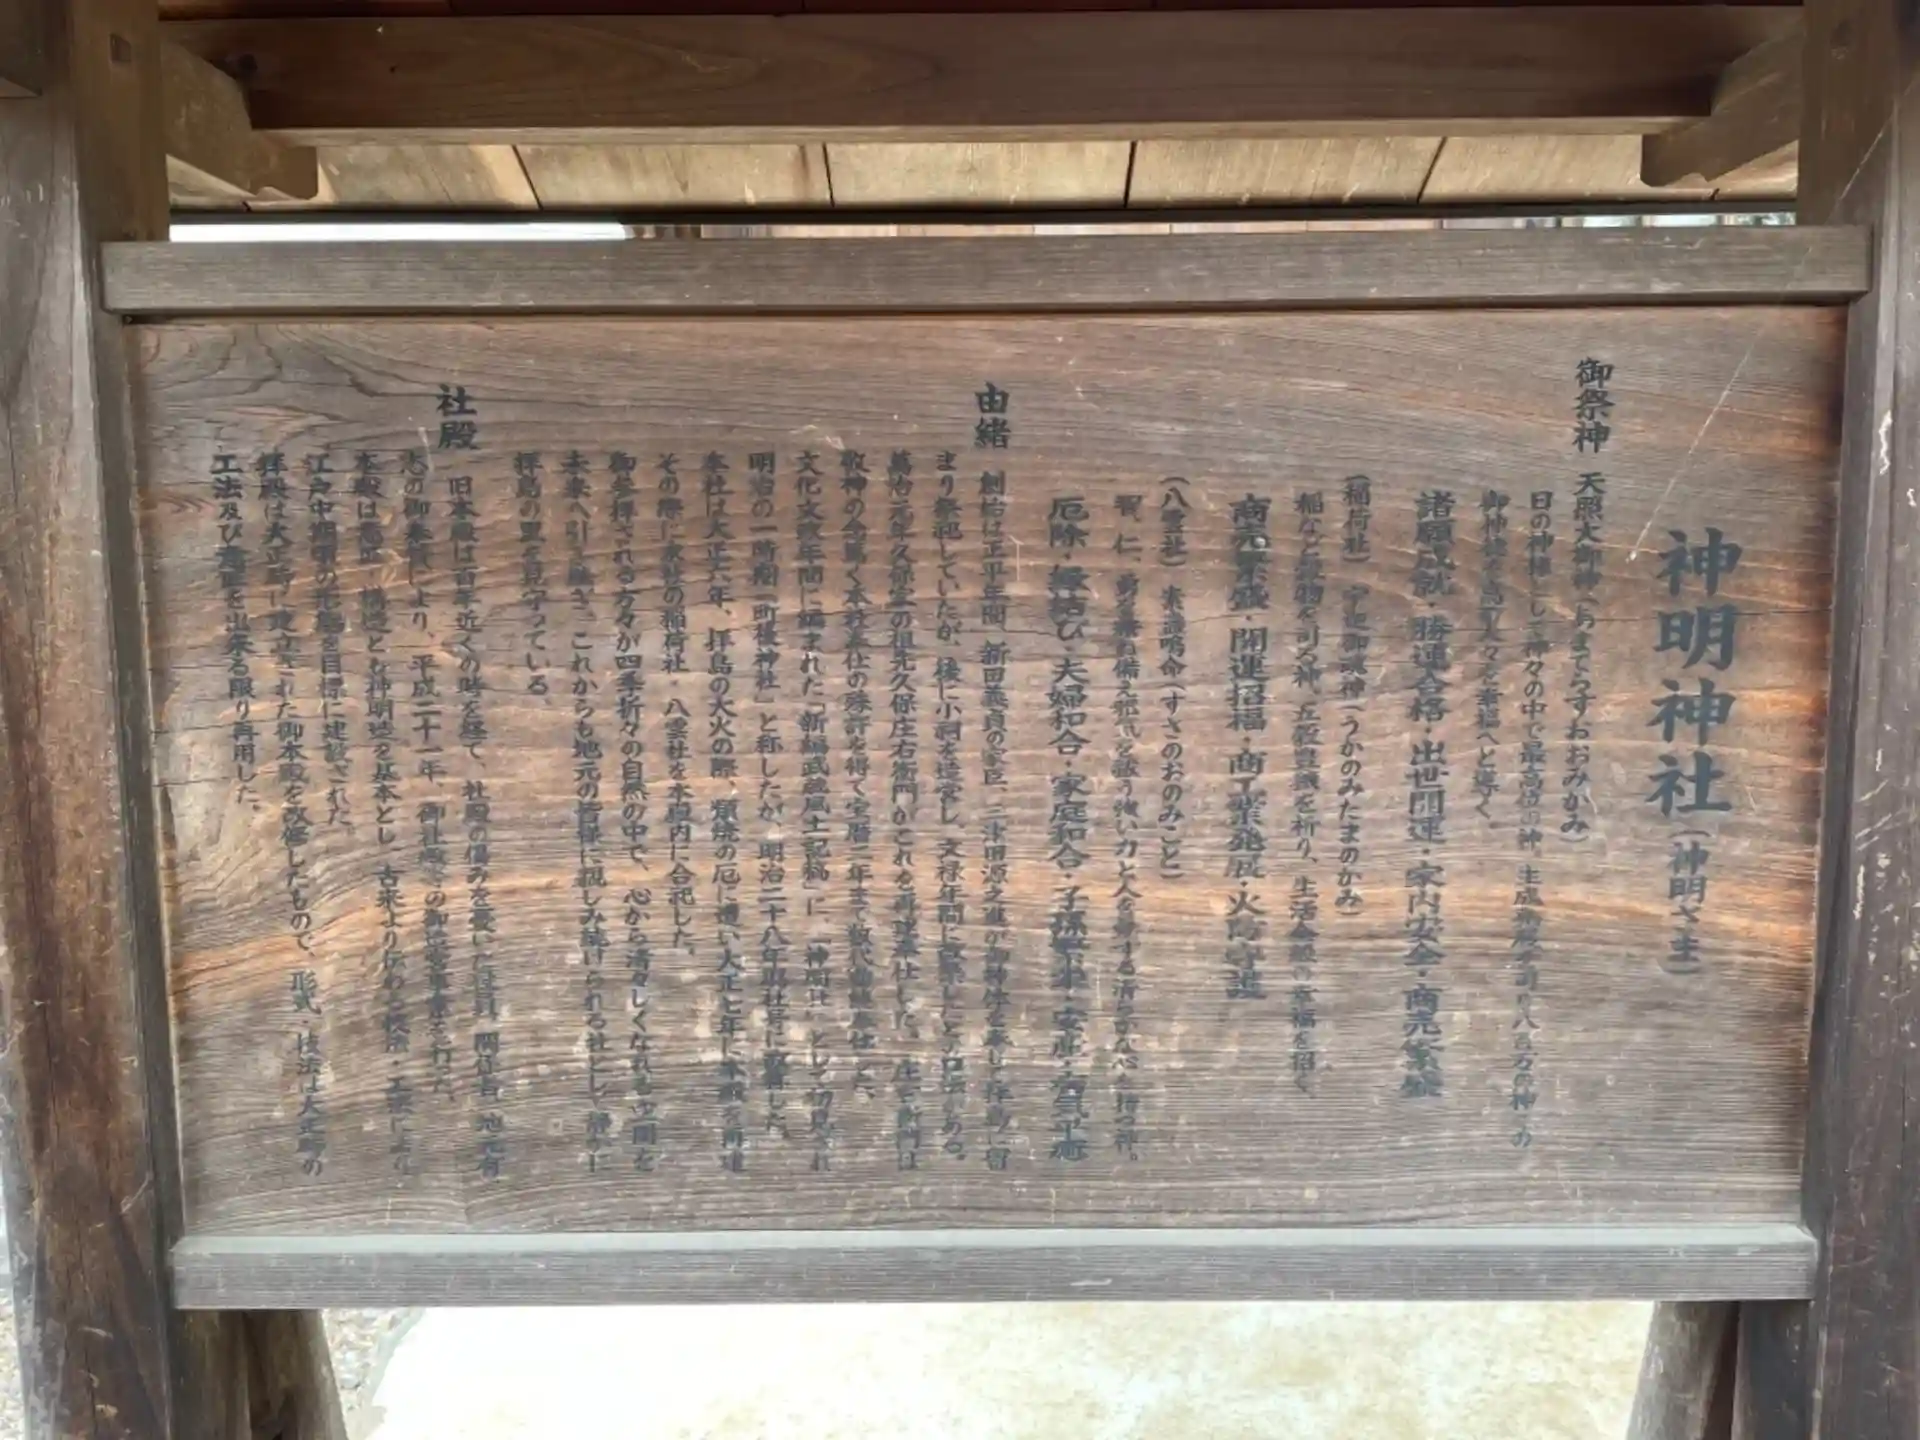 神明神社(神明さま)
御祭神 天照大御神(あまてらすおおみかみ)
日の神様とし神々の中で最高位の神、生成発展を司り八百万の神々の
御神徳を高め人々を幸福へと導く。
諸願成就・勝運合格・出世開運・家内安全・商売繁盛
(稲荷社) 宇迦御魂神(うかのみたまのかみ)
稲など穀物を司る神、五穀豊穣を祈り、生活全般の幸福を招く、
商売繁盛・開運招福・商工業発展・火防守護
(八雲社) 素盞嗚命(すさのおのみこと)
智、仁、勇を兼ね備え邪気を祓う強い力と人を愛する清らかな心を持つ神。
厄除・縁結び・夫婦和合・家庭和合・子孫繁栄・安産・病気平癒
由緒 創始は正平年間、新田義貞の家臣、三津田源之進が御神体を奉じて拝島に留
まり祭祀していたが、後に小祠を造営し、文禄年間に改築したとの口伝がある。
萬治元年久保家の祖先久保庄右衛門がこれを再建奉仕した。庄右衛門は
敬神の念篤く本社奉仕の殊許を得て宝暦二年まで数代勤続奉仕した。
文化文政年間に編まれた「新編武蔵風土記稿」に、「神明社」として初見され
明治の一時期「町後神社」と称したが、明治二十八年現社号に改称した。
本社は大正六年、拝島の大火の際、類焼の厄に遭い大正七年に本殿を再建
その際に末社の稲荷社・八雲社を本殿内に合祀した。
御参拝される方々が四季折々の自然の中で、心から清々しくなれる空間を
未来へ引き継ぎ、これからも地元の皆様に親しみ続けられる社とし静かに
拝島の里を見守っている。
社殿 旧本殿は百年近くの時を経て、社殿の傷みを憂いた役員、関係者、地元有
志の御奉賛により、平成二十一年、御社殿等の御造営事業を行った。
本殿は意匠・構造とも神明造を基本とし、古来より伝わる技法・工法により
江戸中期頃の形態を目標に建設された。
拝殿は大正時に建立された御本殿を改修したもので、形式・技法は大正時の
工法及び意匠を出来る限り再用した。